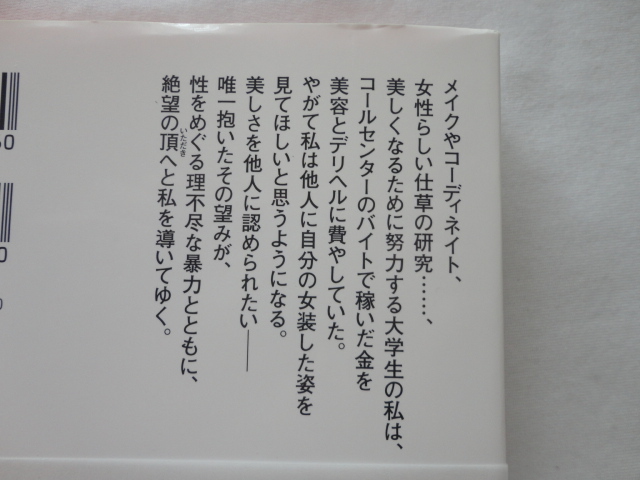 メイクやコーディネイト、
女性らしい仕草の研究……、
美しくなるために努力する大学生の私は、
コールセンターのバイトで稼いだ金を
美容とデリヘルに費やしていた。
やがて私は他人に自分の女装した姿を
見てほしいと思うようになる。
美しさを他人に認められたい――
唯一抱いたその望みが、
性をめぐる理不尽な暴力とともに、
絶望の頂へと私を導いてゆく。
いただき